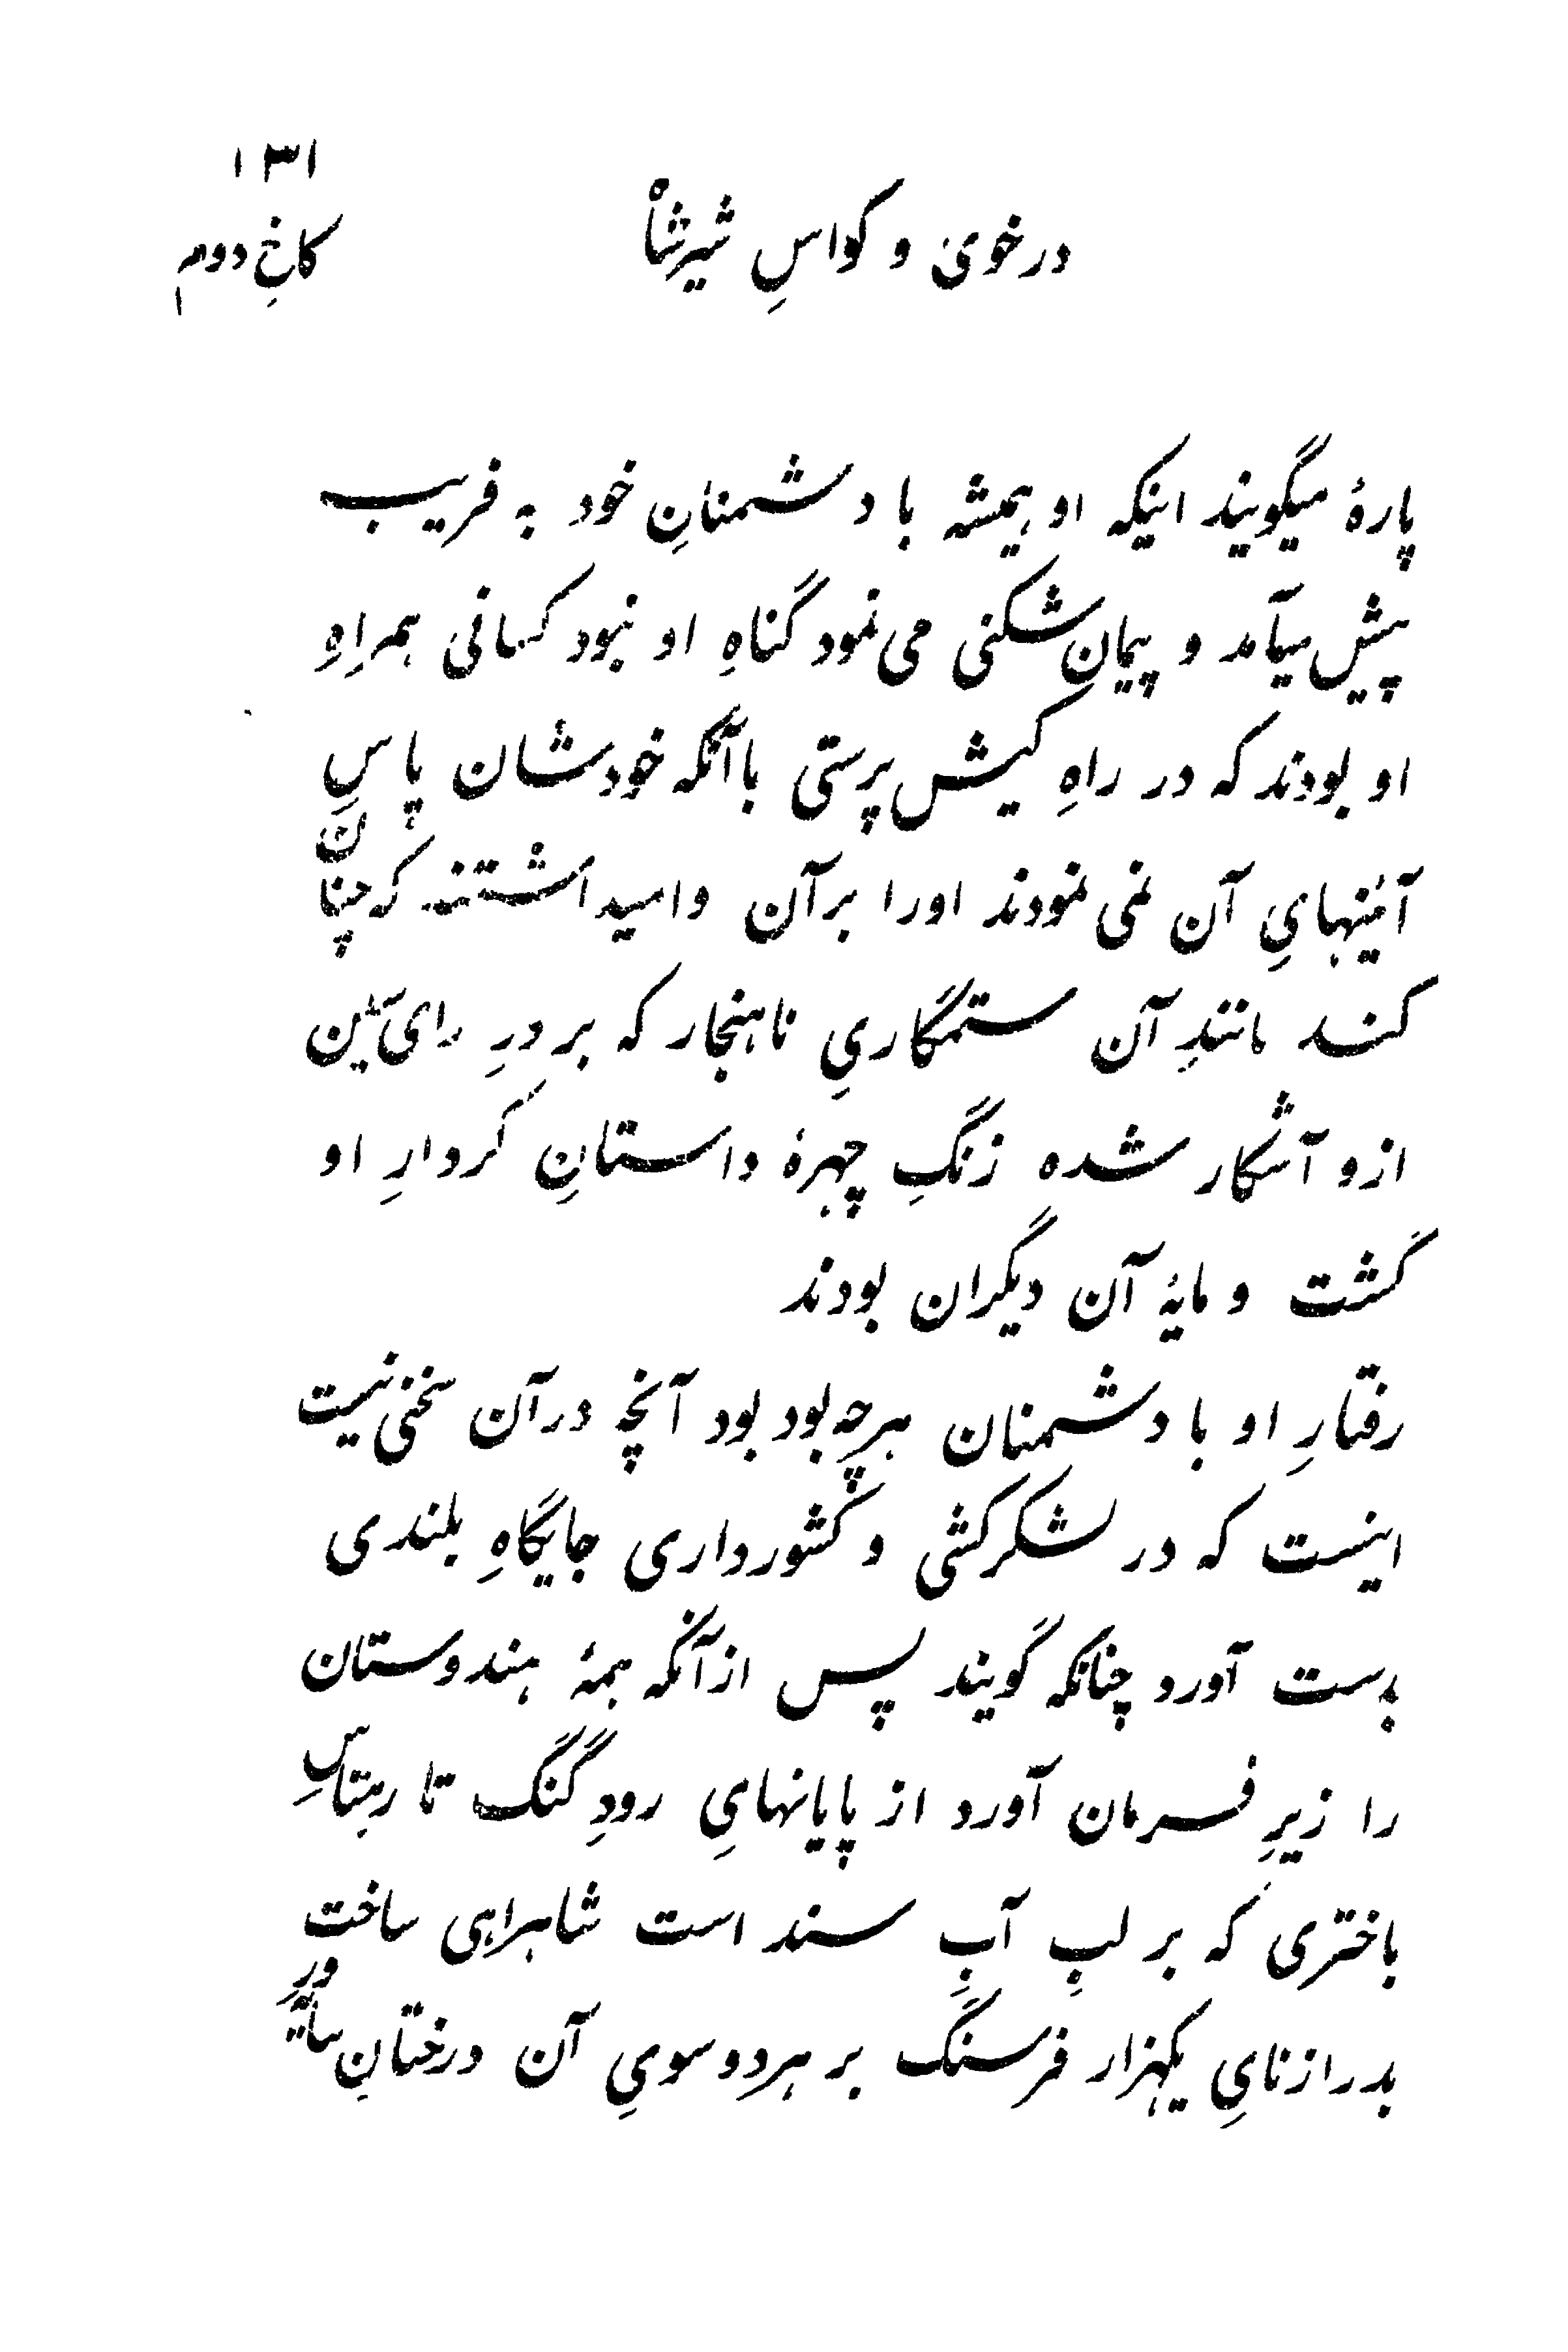 ۱۳۱
در خوی و کواسِ شیرشاه
کاخِ دوم
پارهٔ میگویند اینکه او همیشه با دشمنانِ خود به فریب
پیش میآمد و پیمان شکنی می نمود گناهِ او نبود کسانی همراهِ
او بودند که در راهِ کیش پرستی با آنکه خودشان پاسِ
آئینهایِ آن نمی نمودند اورا بر آن وامیداشتند که چنان
کند مانندِ آن ستمگاریِ ناهنجار که بر درِ رای سین
ازو آشکار شده زنگِ چهرهٔ داستانِ کردارِ او
گشت و مایهٔ آن دیگران بودند
رفتارِ او با دشمنان هرچه بود بود آنچه در آن سخنی نیست
اینست که در لشکرکشی و کشورداری جایگاهِ بلندی
بدست آورد چنانکه گویند پس از آنکه همهٔ هندوستان
را زیرِ فرمان آورد از پایانهایِ رودِ گنگ تا رهتاسِ
باختری که بر لبِ آبِ سند است شاهراهی ساخت
بدرازنایِ یکهزار فرسنگ بر هر دو سویِ آن درختانِ سایه ورِ